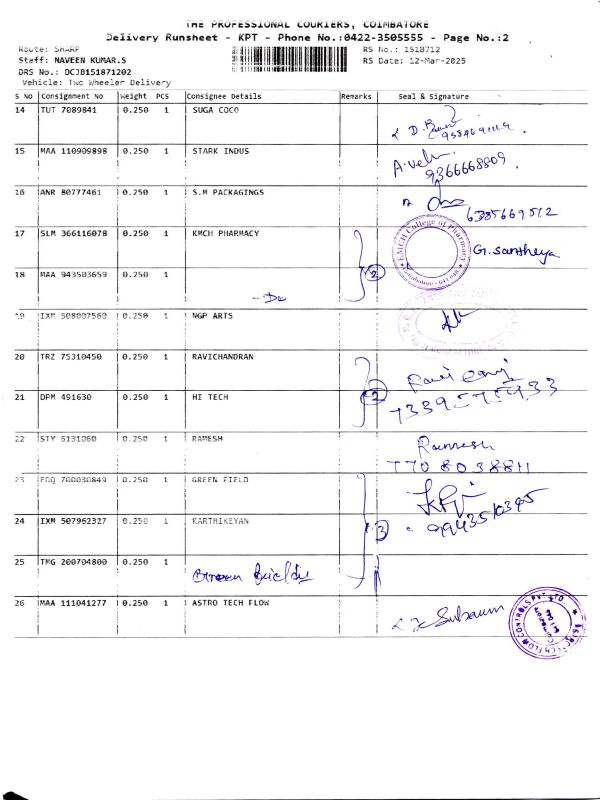 THE PROFESSIONAL COURIERS, COIMBATORE
Delivery Runsheet - KPT - Phone No.:0422-3505555 - Page No.:2
Route: SHARP RS No.: 1518712
Staff: NAVEEN KUMAR.S RS Date: 12-Mar-2025
DRS No.: DCJB151871202
Vehicle: Two Wheeler Delivery
S No Consignment No Weight PCS Consignee Details Remarks Seal & Signature
14 TUT 7089841 0.250 1 SUGA COCO
15 MAA 110909898 0.250 1 STARK INDUS
9366668809
16 ANR 80777461 0.250 1 S.M PACKAGINGS
6385669512
17 SLM 366116078 0.250 1 KMCH PHARMACY
KMCH College of Pharmacy
G. Santheya
18 MAA 943503659 0.250 1
2
19 IXM 508007560 0.250 1 NGP ARTS
20 TRZ 75310450 0.250 1 RAVICHANDRAN
2
21 DPM 491630 0.250 1 HI TECH
7339575933
22 STY 6131060 0.250 1 RAMESH
Ramesh
7708038811
23 PDQ 700030849 0.250 1 GREEN FIELD
24 IXM 507962327 0.250 1 KARTHIKEYAN
3 9943510395
25 TMG 200704800 0.250 1
Green Fields
26 MAA 111041277 0.250 1 ASTRO TECH FLOW